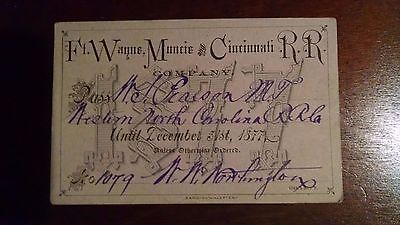 Ft. Wayne, Muncie and Cincinnati R.R.
COMPANY.
Pass W. S. Pearson M.T.
Western North Carolina R.R. Co
Until December 31st, 1877
Unless Otherwise Ordered.
No 1079 W. W. Worthington